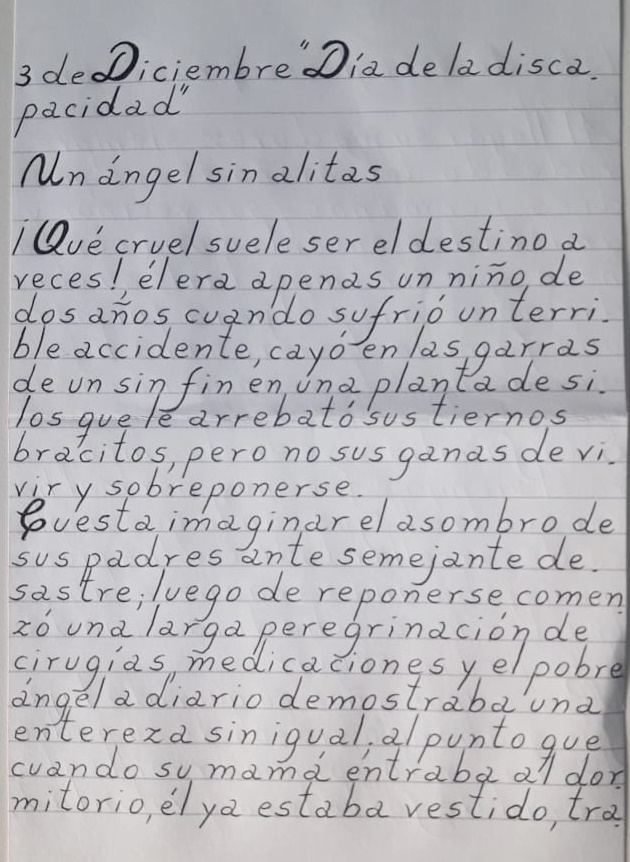 3 de Diciembre "Día de la disca.
pacidad"
Un ángel sin alitas
¡Qué cruel suele ser el destino a
veces! él era apenas un niño de
dos años cuando sufrió un terri.
ble accidente, cayó en las garras
de un sin fin en una planta de si.
los que le arrebató sus tiernos
bracitos, pero no sus ganas de vi.
vir y sobreponerse.
Cuesta imaginar el asombro de
sus padres ante semejante de.
sastre, luego de reponerse comen
zó una larga peregrinación de
cirugías, medicaciones y el pobre
ángel a diario demostraba una
entereza sin igual, al punto que
cuando su mamá entraba al dor.
mitorio, él ya estaba vestido, tra.